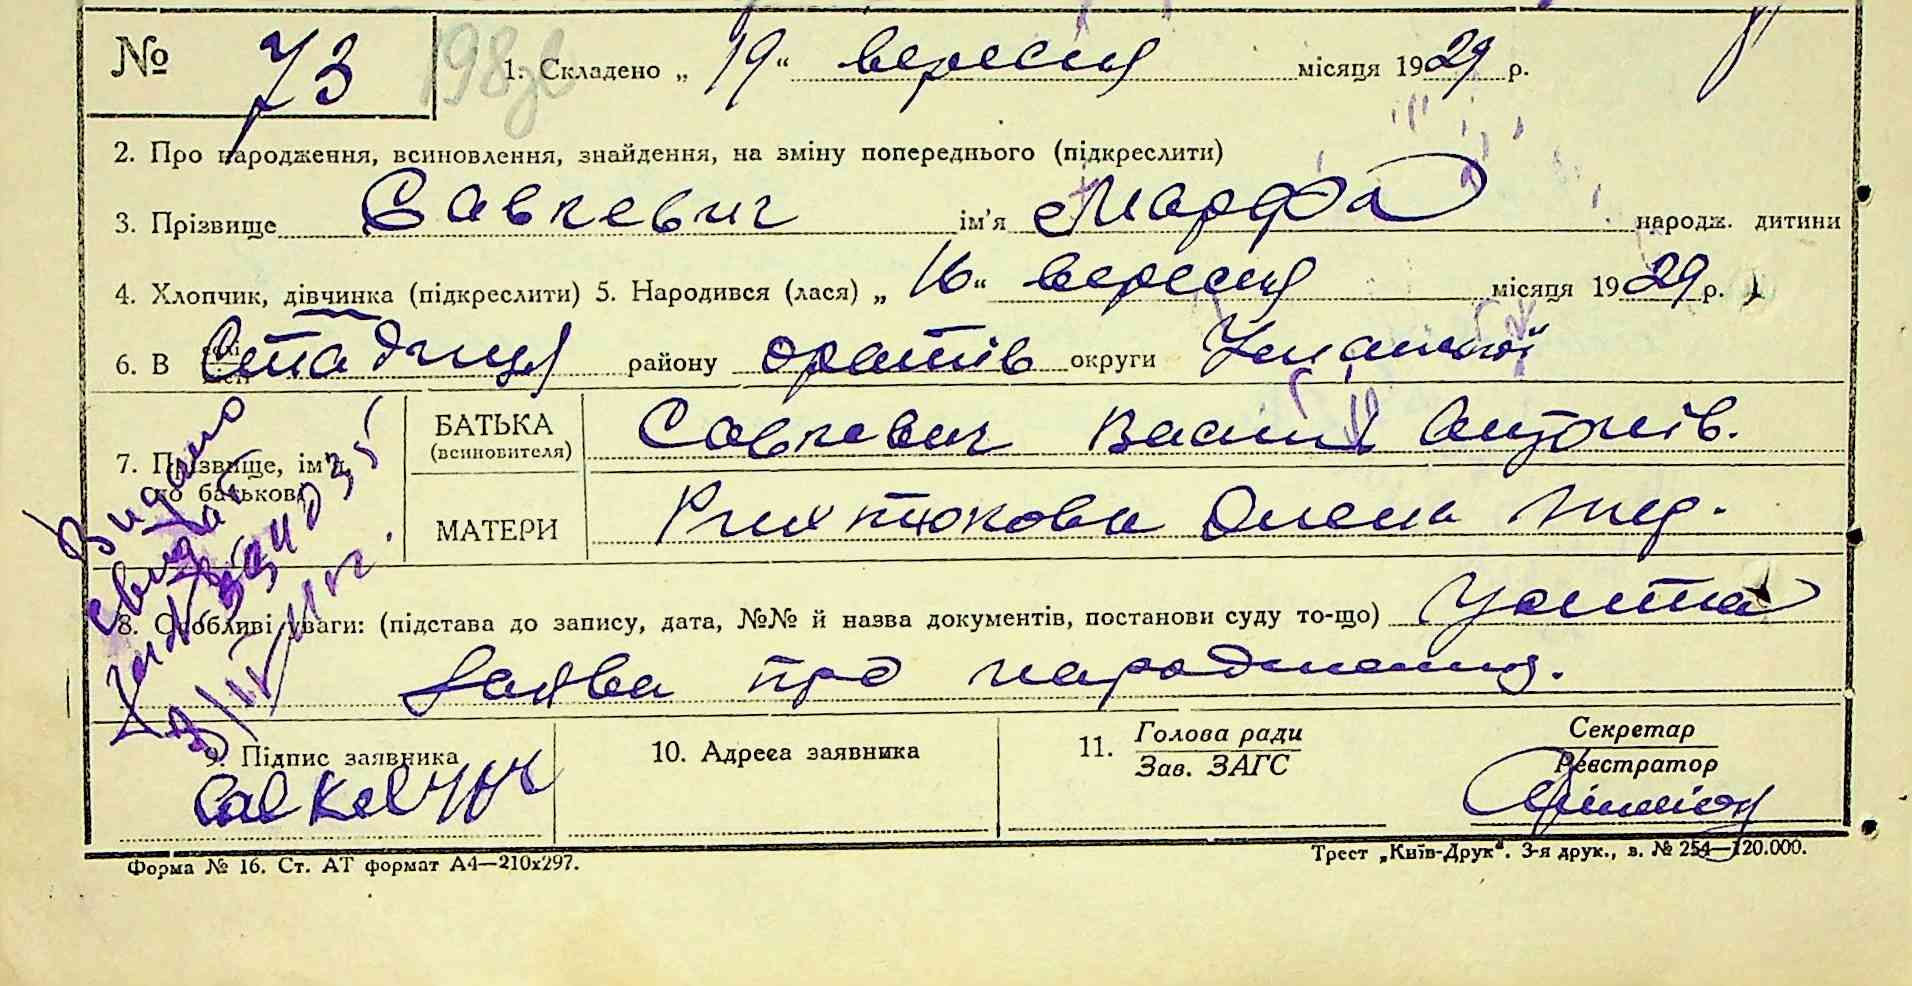 № 73 198зв 1. Складено „19“ вересня місяця 1929 р.
2. Про народження, всиновлення, знайдення, на зміну попереднього (підкреслити)
3. Прізвище Савкевич ім’я Марфа народж. дитини
4. Хлопчик, дівчинка (підкреслити) 5. Народився (лася) „16“ вересня місяця 1929 р.
6. В селі Стадниця району Оратів округи Уманської
7. Прізвище, ім’я, по батькові
БАТЬКА (всиновителя) Савкевич Василь Антонів.
МАТЕРИ Олена
Видано
8. Особливі уваги: (підстава до запису, дата, №№ й назва документів, постанови суду то-що) Усна
заява про народження.
9. Підпис заявника 10. Адреса заявника 11. Голова ради Зав. ЗАГС Секретар Реєстратор
Савкевич
Форма № 16. Ст. АТ формат А4—210x297. Трест „Київ-Друк“. 3-я друк., в. № 254—120.000.